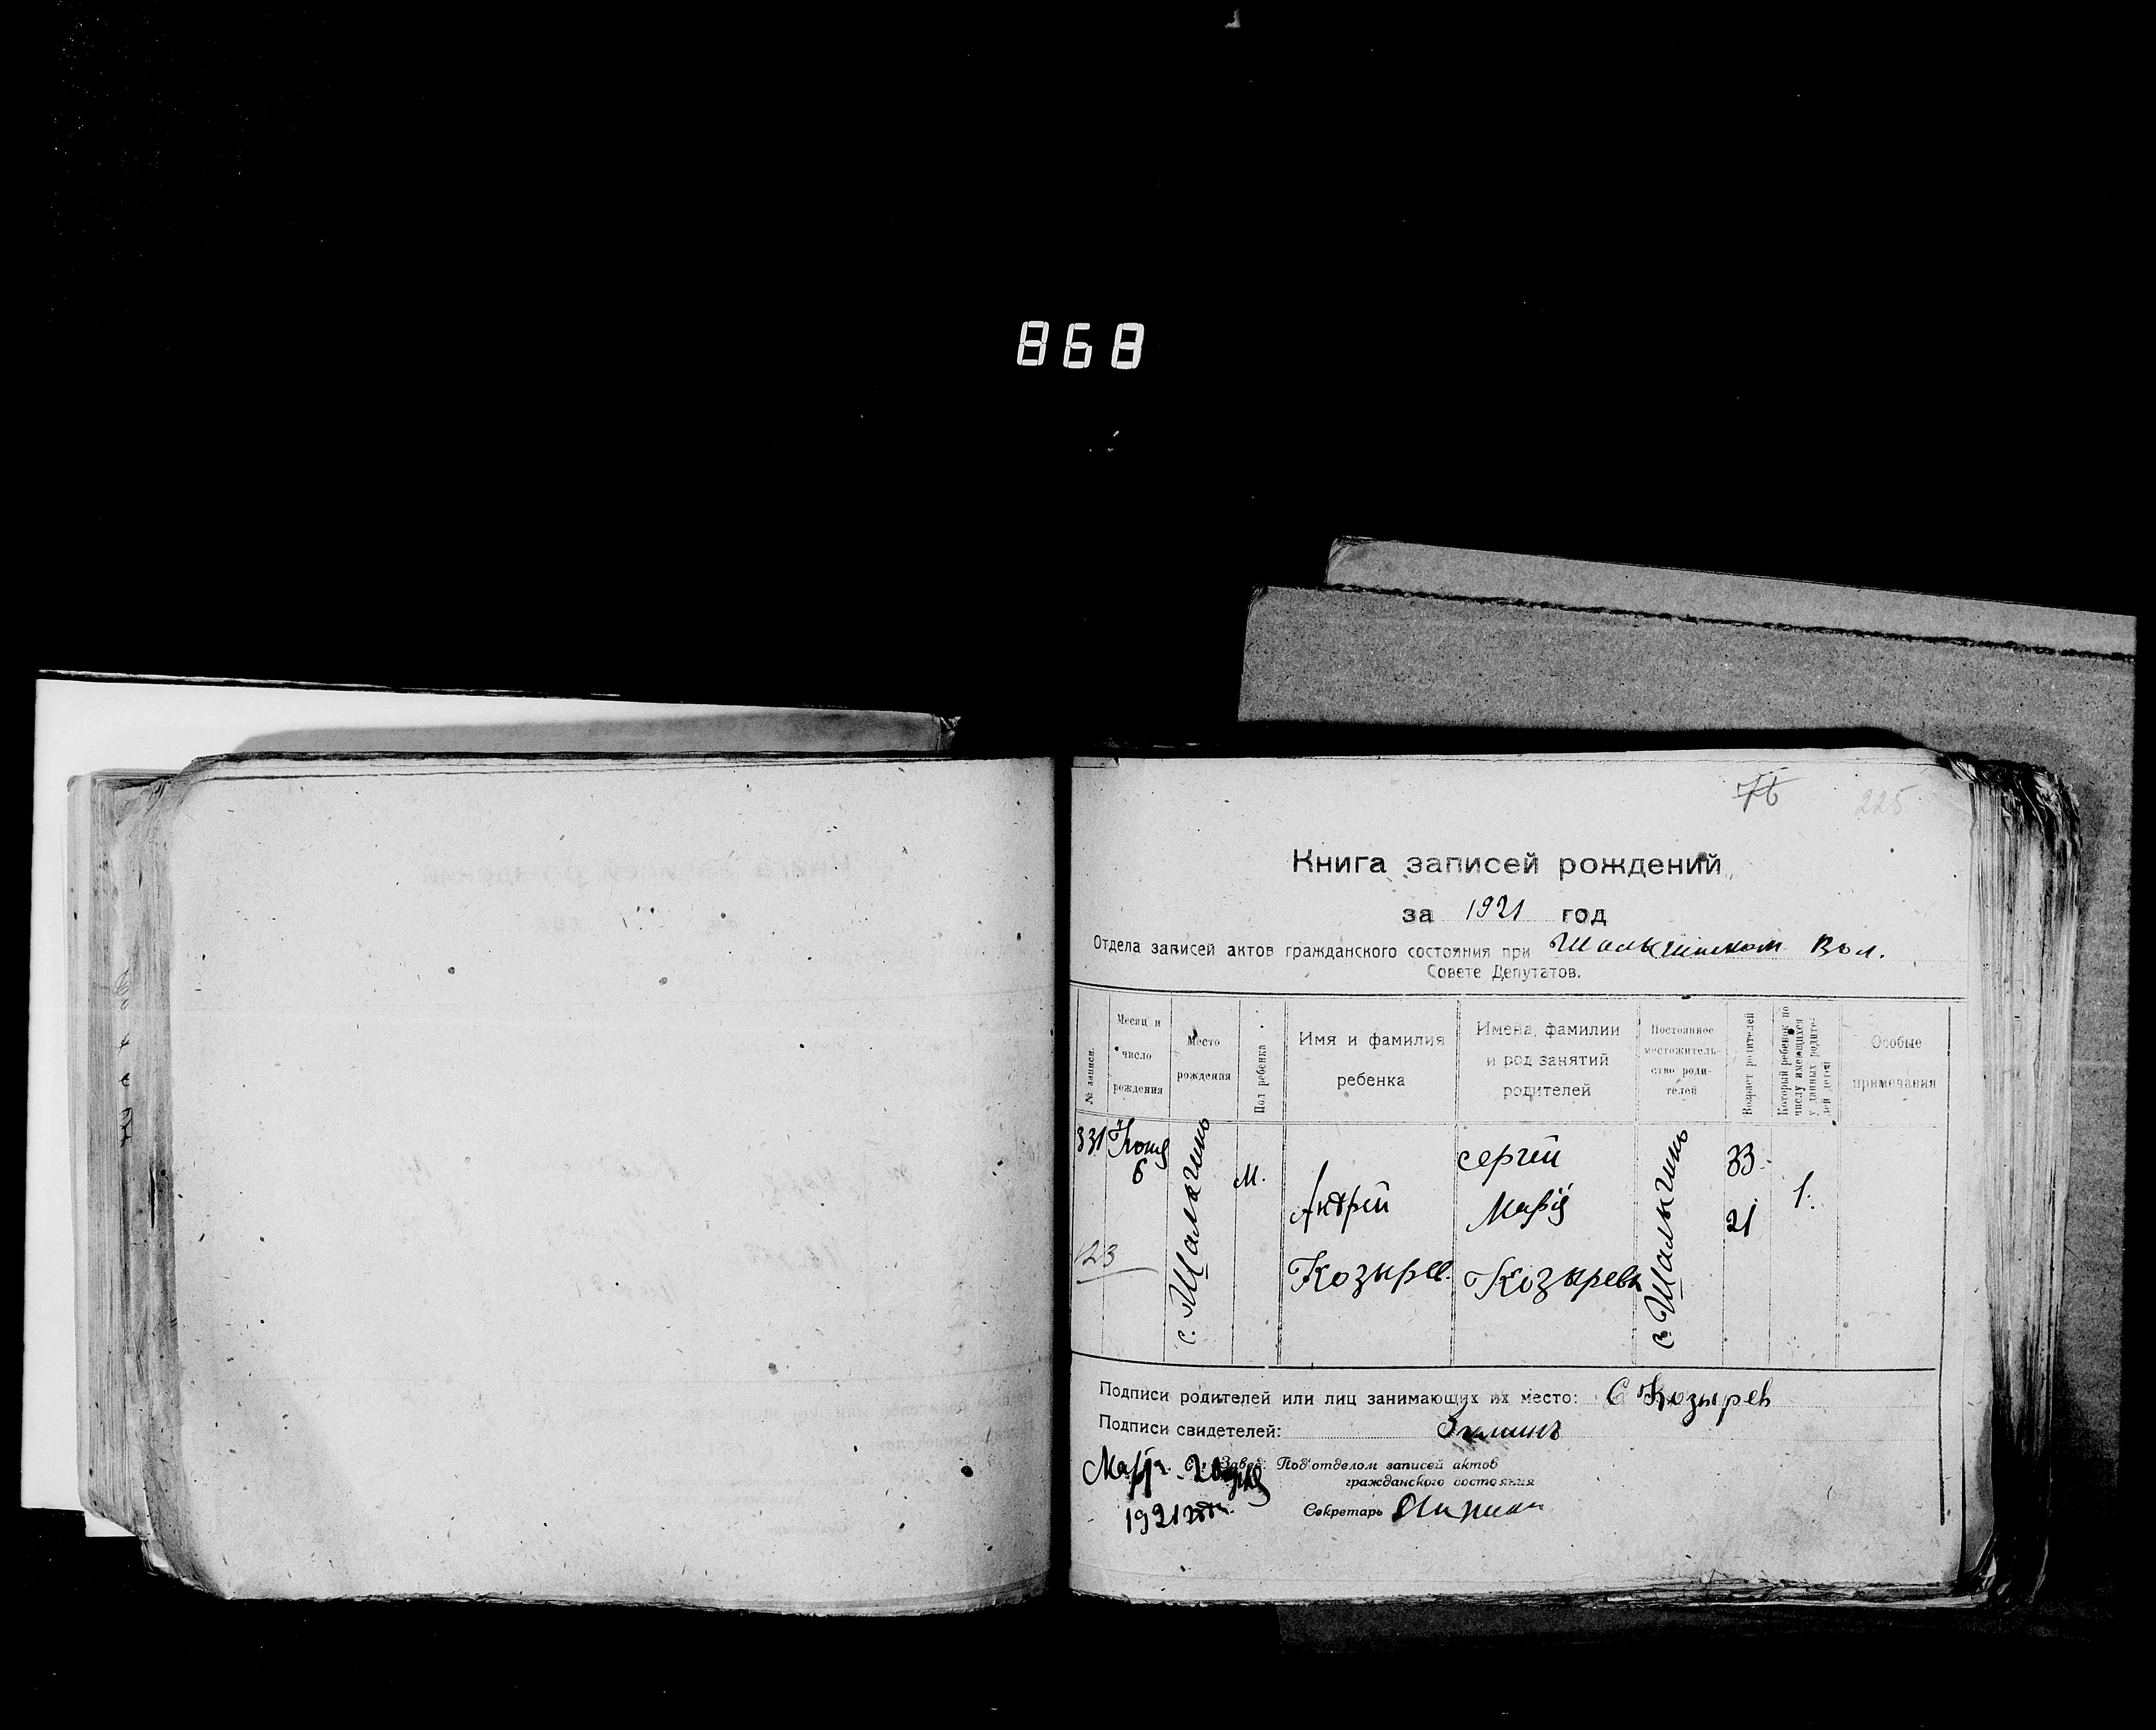 868
76
225
Книга записей рождений
за 1921 год
Отдела записей актов гражданского состояния при Шалыгинском Вол.
Совете Депутатов.
№ записи.
Месяц и число рождения
Место рождения
Пол ребенка
Имя и фамилия ребенка
Имена, фамилии и род занятий родителей
Постоянное местожительство родителей
Возраст родителей
Который ребенок по числу имеющихся у данных родителей детей
Особые примечания
331
6
с. Шалыгино
м.
Андрей
Козырев.
Сергей
Марія
Козыревы
с. Шалыгино
33
21
1.
123
Подписи родителей или лиц занимающих их место: С Козырев
Подписи свидетелей:
Завед. Под'отделом записей актов
гражданского состояния
1921
Секретарь